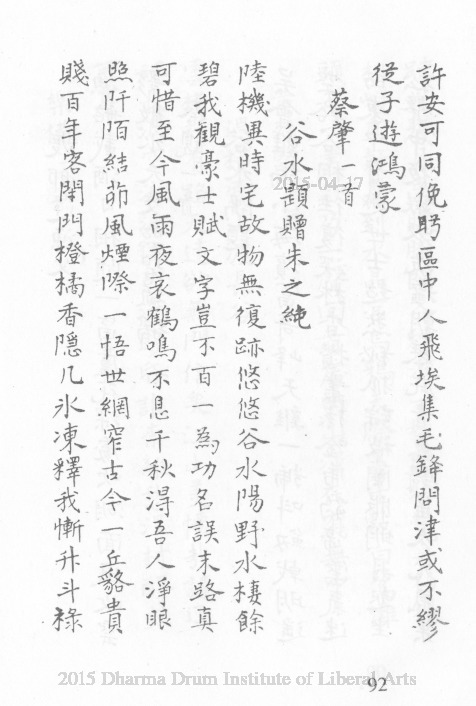 許安可同俛眄區中人飛埃集毛鋒問津或不繆
從子遊鴻蒙
蔡肇一首
谷水題贈朱之純
陸機異時宅故物無復跡悠悠谷水陽野水棲餘
碧我觀豪士賦文字豈不百一為功名誤末路真
可惜至今風雨夜哀鶴鳴不息千秋淂吾人淨眼
照阡陌結茆風煙際一悟世網窄古今一丘貉貴
賤百年客閑門橙橘香隠几氷凍釋我慚升斗祿
2015-04-17
2015 Dharma Drum Institute of Liberal Arts
92